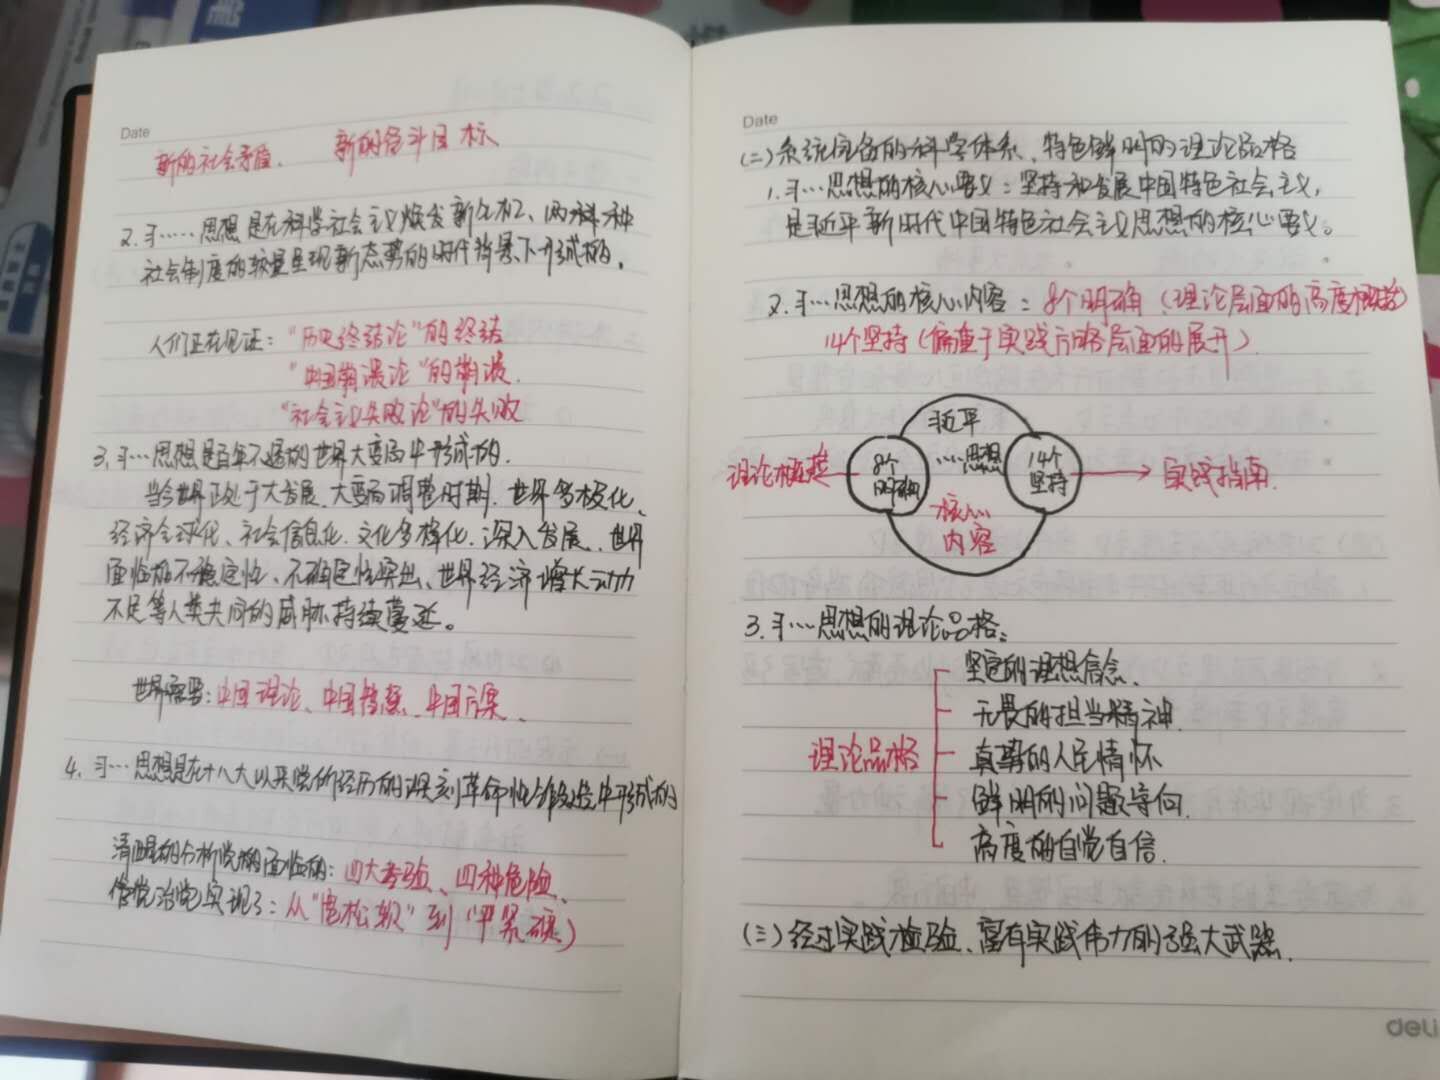 Date
新的社会矛盾、 新的奋斗目标
2.习……思想是在科学社会主义焕发新生机、两种
社会制度的较量呈现新态势的时代背景下形成的。
人们正在见证：“历史终结论”的终结
“中国崩溃论”的崩溃.
“社会主义失败论”的失败
3.习…思想是百年不遇的世界大变局中形成的.
当今世界正处于大发展、大变局调整时期、世界多极化、
经济全球化、社会信息化、文化多样化、深入发展、世界
面临的不稳定性、不确定性突出、世界经济增长动力
不足等人类共同的威胁持续蔓延。
世界需要：中国理论、中国智慧、中国方案、
4.习…思想是在十八大以来党所经历的深刻革命性锻造中形成的
清醒的分析党的面临的：四大考验、四种危险、
管党治党实现了：从“宽松软”到“严紧硬）
Date
(二)系统完备的科学体系、特色鲜明的理论品格
1.习…思想的核心要义：坚持和发展中国特色社会主义，
是习近平新时代中国特色社会主义思想的核心要义。
2.习…思想的核心内容：8个明确（理论层面的高度概括）
14个坚持（偏重于实践方略层面的展开）
习近平
…思想
理论概括
8个
明确
14个
坚持
实践指南
核心
内容
3.习…思想的理论品格：
坚定的理想信念、
无畏的担当精神、
理论品格
真挚的人民情怀
鲜明的问题导向
高度的自觉自信.
(三)经过实践检验、富有实践伟力的强大武器.
deli